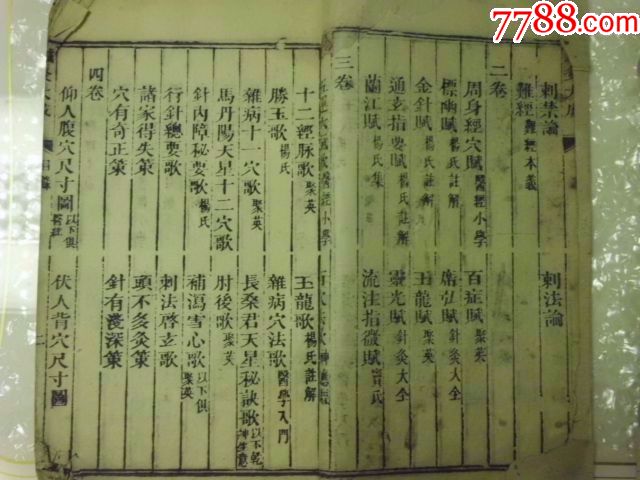 7788.com
刺禁論 刺法論
難經 難經本義
二卷
周身經穴賦 醫經小學 百症賦 聚英
標幽賦 楊氏註解 席弘賦 針灸大全
金針賦 楊氏註解 玉龍賦 聚英
通玄指要賦 楊氏註解 靈光賦 針灸大全
蘭江賦 楊氏集 流注指微賦 竇氏
三卷
十二經脉歌 聚英 玉龍歌 楊氏註解
勝玉歌 楊氏 雜病穴法歌 醫學入門
雜病十一穴歌 聚英 長桑君天星秘訣歌 以下乾坤生意
馬丹陽天星十二穴歌 肘後歌 聚英
針內障秘要歌 楊氏 補瀉雪心歌 以下俱聚英
行針總要歌 刺法啓玄歌
諸家得失策 頭不多灸策
穴有奇正策 針有淺深策
四卷
仰人腹穴尺寸圖 伏人背穴尺寸圖